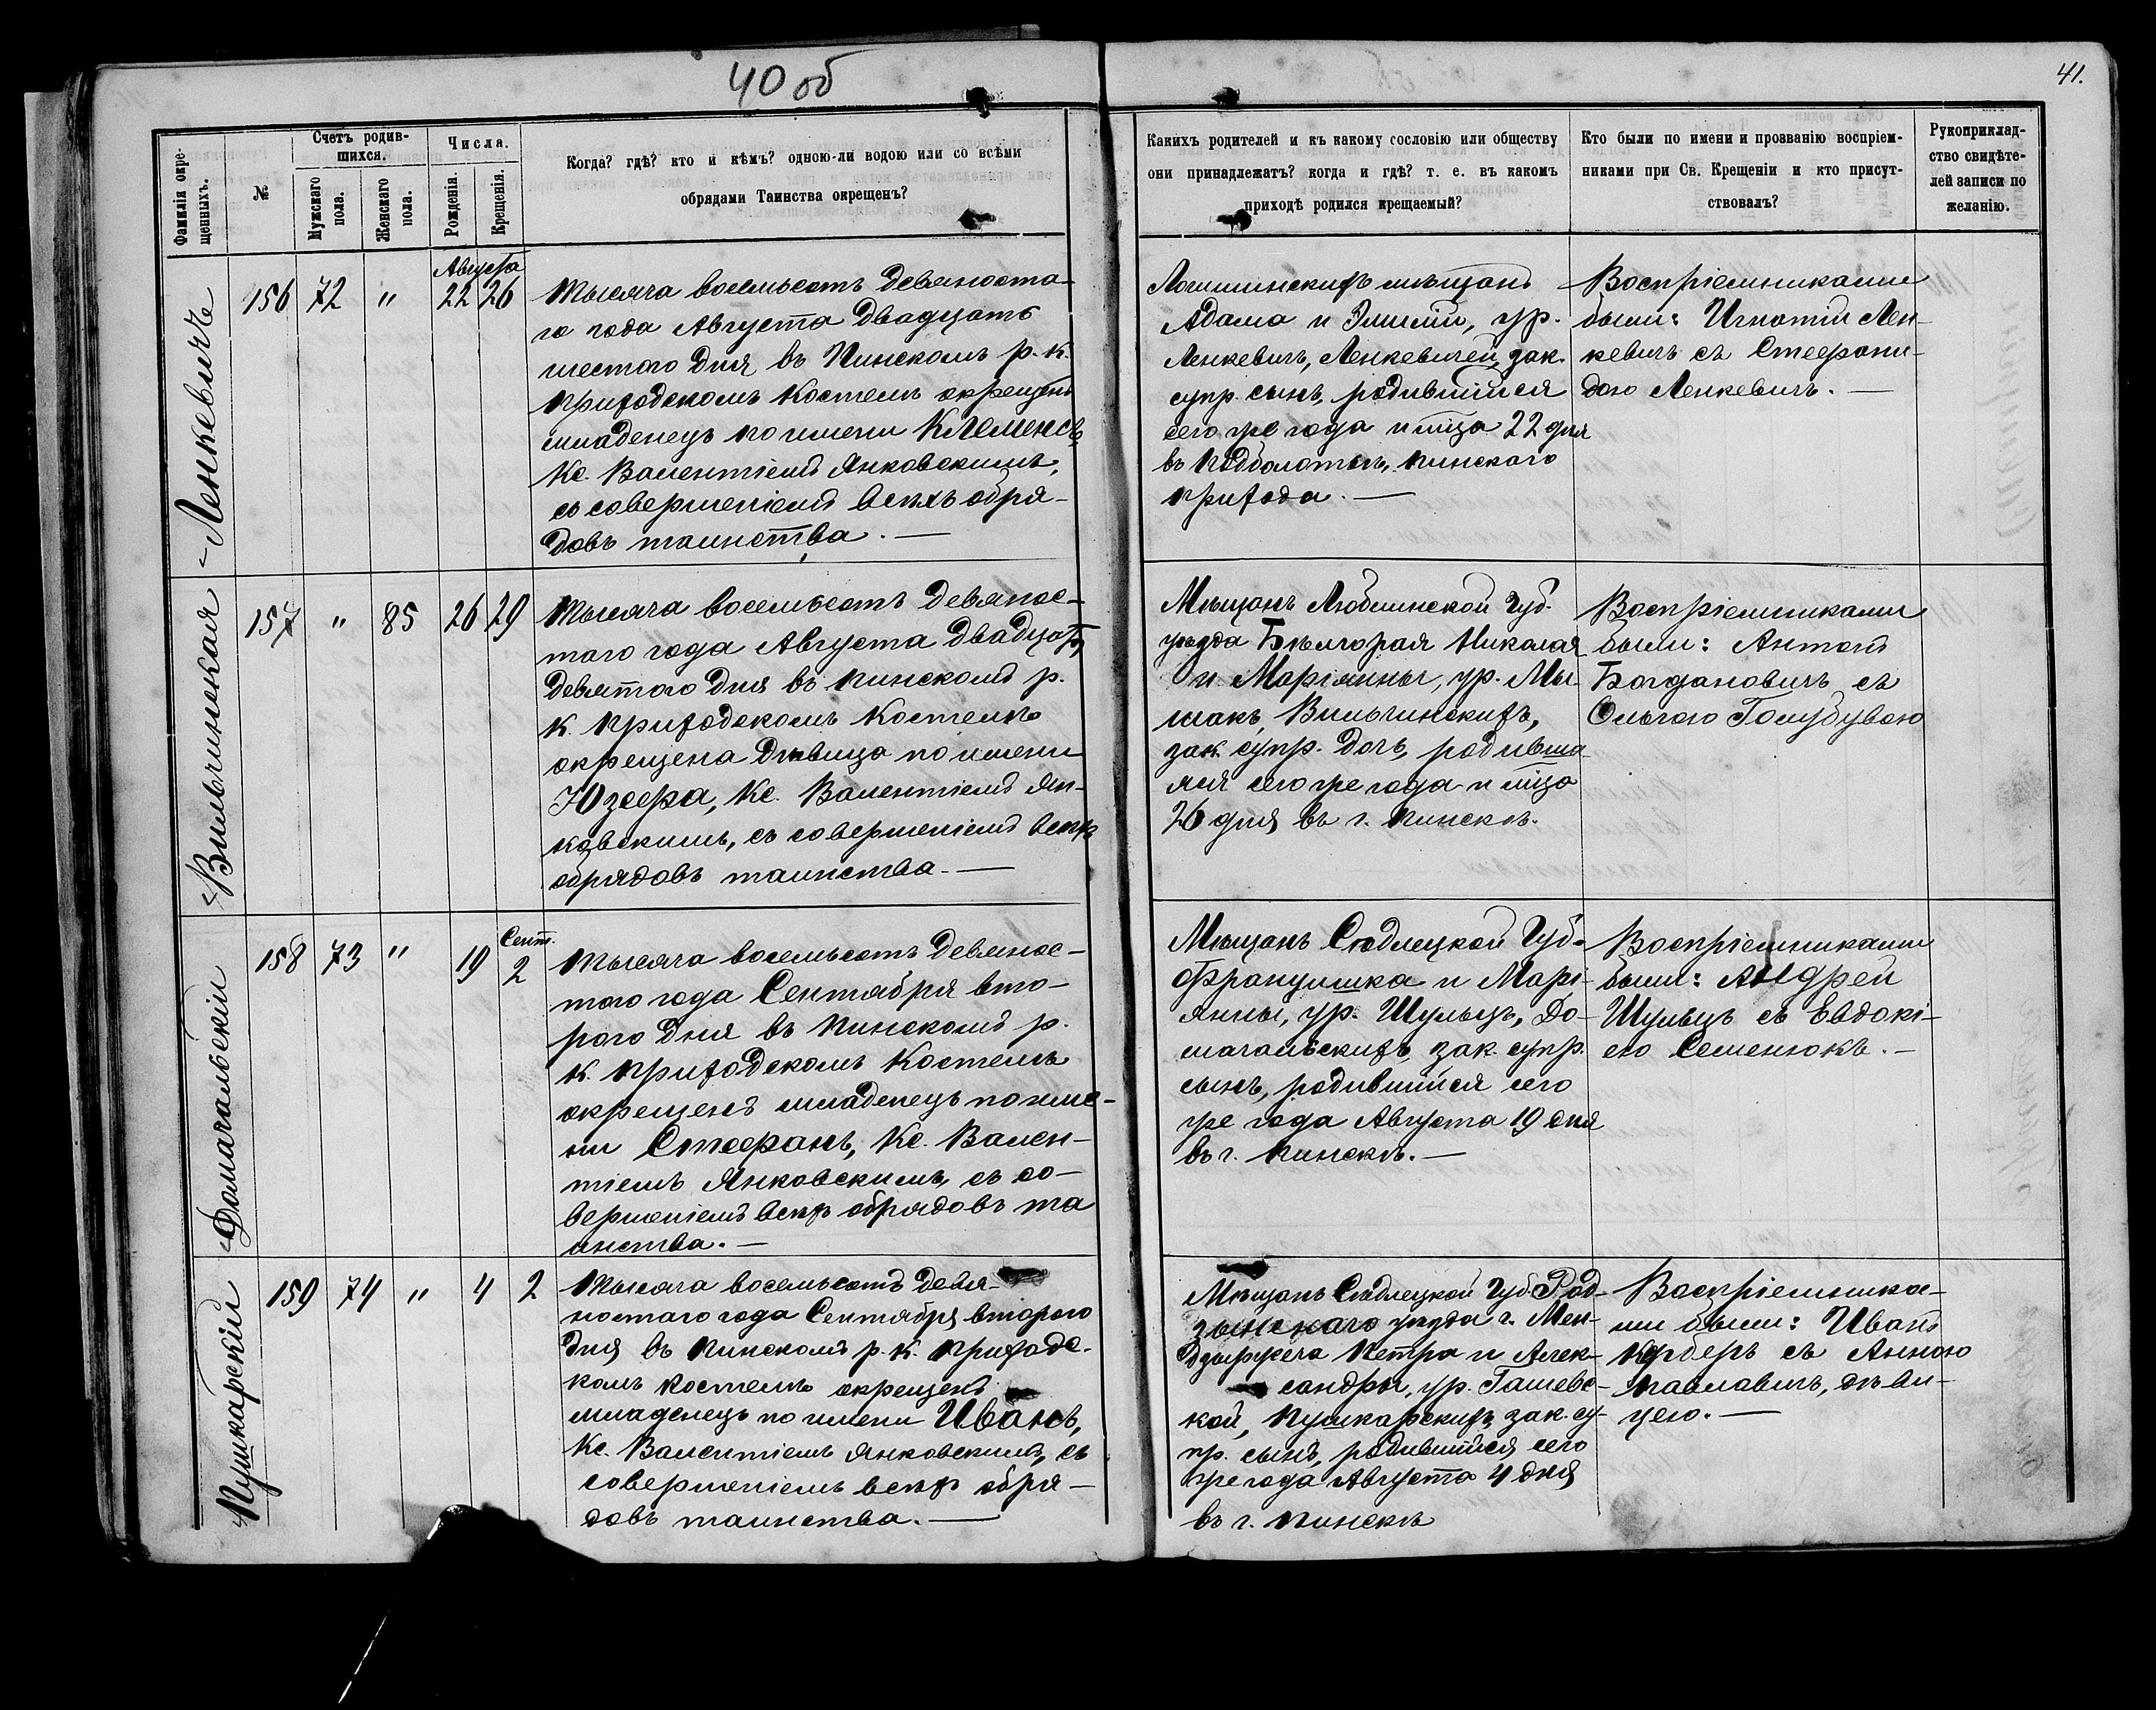 40 об
41.
Фамилія окре-
щенныхъ.
№
Счетъ родив-
шихся.
Мужскаго
пола.
Женскаго
пола.
Числа.
Рожденія.
Крещенія.
Когда? гдѣ? кто и кѣмъ? одною-ли водою или со всѣми
обрядами Таинства окрещенъ?
Какихъ родителей и къ какому сословію или обществу
они принадлежатъ? когда и гдѣ? т. е. въ какомъ
приходѣ родился крещаемый?
Кто были по имени и прозванію воспріем-
никами при Св. Крещеніи и кто присут-
ствовалъ?
Рукоприклад-
ство свидѣте-
лей записи по
желанію.
Ленкевичъ
156 72 " 22 26
Августа
Тысяча восемьсотъ девяноста-
го года Августа двадцать
шестого дня въ Пинскомъ р. к.
приходскомъ костелѣ окрещенъ
младенецъ по имени Клеменсъ,
Кс. Валентіемъ Янковскимъ,
съ совершеніемъ всѣхъ обря-
довъ таинства. —
Логишинскихъ мѣщанъ
Адама и Эмиліи, ур.
Ленкевичъ, Ленкевичей, зак.
супр. сынъ, родившійся
сего же года и мѣца 22 дня
въ Подболотьѣ, Пинскаго
прихода. —
Воспріемниками
были: Игнатій Лен-
кевичъ съ Стефани-
дою Ленкевичъ. —
Вильчинская
157 " 85 26 29
Тысяча восемьсотъ девянос-
таго года Августа двадцать
девятого дня въ Пинскомъ р.
к. приходскомъ костелѣ
окрещена дѣвица по имени
Юзефа, Кс. Валентіемъ Ян-
ковскимъ, съ совершеніемъ всѣхъ
обрядовъ таинства. —
Мѣщанъ Люблинской Губ.
уѣзда Бѣлгорая Николая
и Маріянны, ур. Мы-
шакъ, Вильчинскихъ,
зак. супр. дочь, родивша-
яся сего же года и мѣца
26 дня въ г. Пинскѣ.
Воспріемниками
были: Антонъ
Богдановичъ съ
Ольгою Голубувою
Домачальскій
158 73 " 19 2
Сент.
Тысяча восемьсотъ девянос-
таго года Сентября вто-
рого дня въ Пинскомъ р.
к. приходскомъ костелѣ
окрещенъ младенецъ по име-
ни Стефанъ, Кс. Вален-
тіемъ Янковскимъ, съ со-
вершеніемъ всѣхъ обрядовъ та
инства. —
Мѣщанъ Сѣдлецкой Губ.
Францишка и Марі-
янны, ур. Шульцъ, До-
мачальскихъ, зак. супр.
сынъ, родившійся сего
же года Августа 19 дня
въ г. Пинскѣ. —
Воспріемниками
были: Андрей
Шульцъ съ Евдокі-
ею Семенюкъ. —
Пушкарскій
159 74 " 4 2
Тысяча восемьсотъ девя-
ностаго года Сентября второго
дня въ Пинскомъ р. к. приходс-
комъ костелѣ окрещенъ
младенецъ по имени Иванъ,
Кс. Валентіемъ Янковскимъ, съ
совершеніемъ всѣхъ обря-
довъ таинства. —
Мѣщанъ Сѣдлецкой Губ. Рад-
зынскаго уѣзда г. Мен-
дзыржеча Петра и Алек-
сандры, ур. Гашевс-
кой, Пушкарскихъ, зак. су-
пр. сынъ, родившійся сего
же года Августа 4 дня
въ г. Пинскѣ
Воспріемника-
ми были: Иванъ
Керберъ съ Анною
Павлавичъ, дѣви-
цею. —